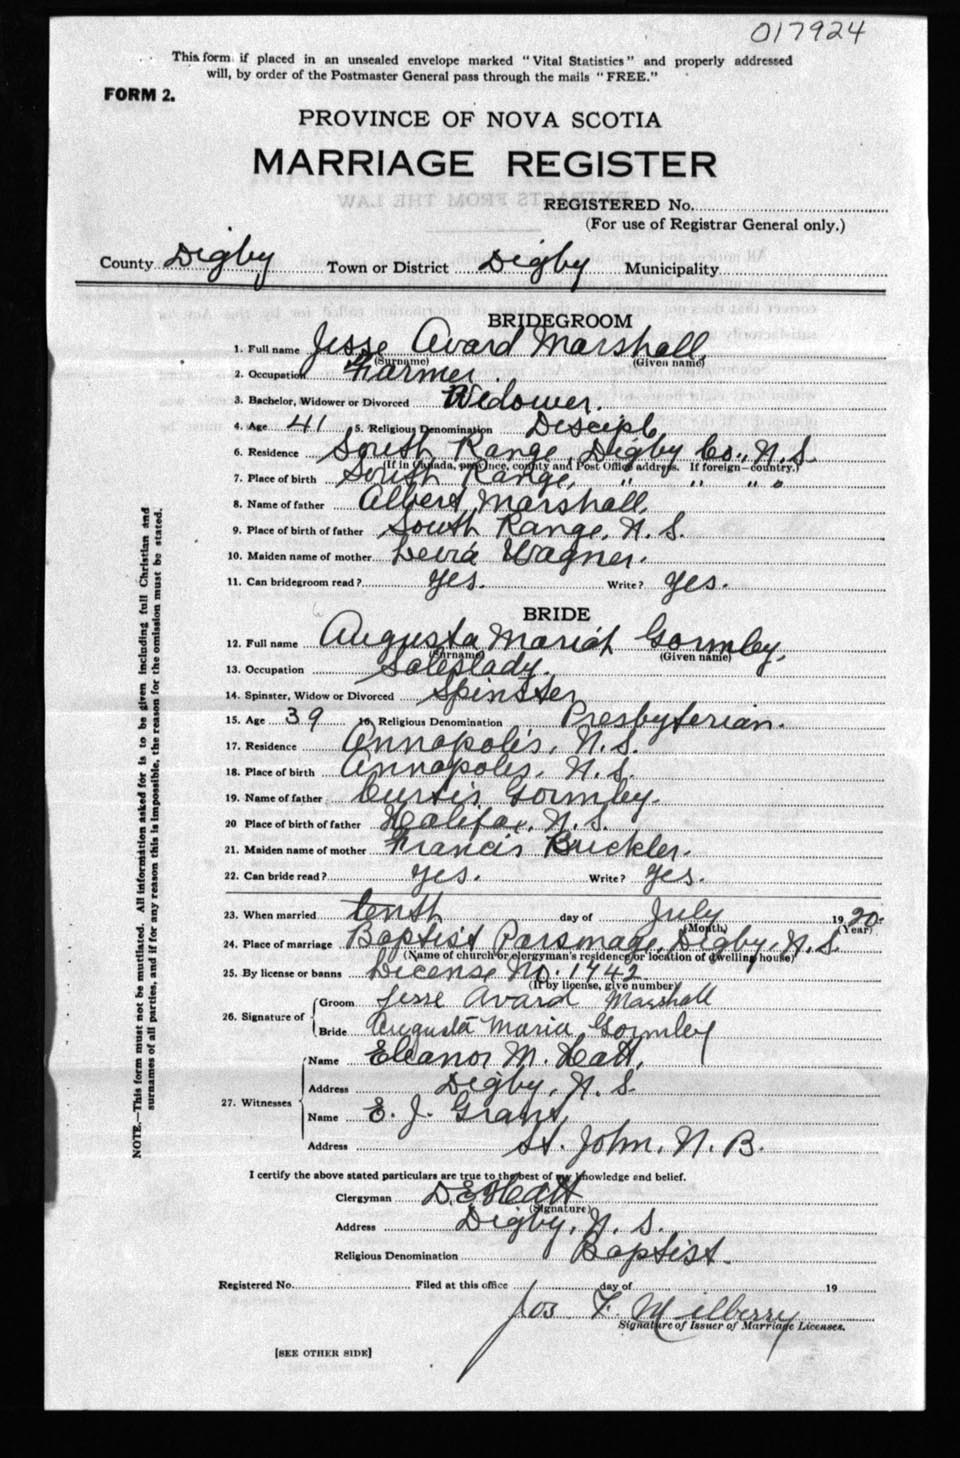 017924
This form if placed in an unsealed envelope marked "Vital Statistics" and properly addressed
will, by order of the Postmaster General pass through the mails "FREE."
FORM 2.
PROVINCE OF NOVA SCOTIA
MARRIAGE REGISTER
REGISTERED No.
(For use of Registrar General only.)
County Digby Town or District Digby Municipality
BRIDEGROOM
1. Full name Jesse Avard Marshall.
(Surname) (Given name)
2. Occupation Farmer.
3. Bachelor, Widower or Divorced Widower.
4. Age 41 5. Religious Denomination Disciple
6. Residence South Range, Digby Co., N.S.
(If in Canada, province, county and Post Office address. If foreign—country.)
7. Place of birth South Range, " " " "
8. Name of father Albert Marshall.
9. Place of birth of father South Range, N.S.
10. Maiden name of mother Wagner.
11. Can bridegroom read? Yes. Write? Yes.
BRIDE
12. Full name Augusta Mariah Gormley.
(Surname) (Given name)
13. Occupation Saleslady.
14. Spinster, Widow or Divorced Spinster
15. Age 39 16. Religious Denomination Presbyterian.
17. Residence Annapolis, N.S.
18. Place of birth Annapolis, N.S.
19. Name of father Curtis Gormley.
20 Place of birth of father Halifax, N.S.
21. Maiden name of mother Francis Buckler.
22. Can bride read? Yes. Write? Yes.
23. When married tenth day of July 1920.
(Month) (Year)
24. Place of marriage Baptist Parsonage, Digby, N.S.
(Name of church or clergyman's residence or location of dwelling house)
25. By license or banns License No. 1742
(If by license, give number)
26. Signature of Groom Jesse Avard Marshall
Bride Augusta Maria Gormley
27. Witnesses Name Eleanor M. Hatt,
Address Digby, N.S.
Name E. J. Grant,
Address St. John, N.B.
I certify the above stated particulars are true to the best of my knowledge and belief.
Clergyman D. E. Hatt
(Signature)
Address Digby, N.S.
Religious Denomination Baptist.
Registered No. Filed at this office day of 19
Jos F. Milberry
Signature of Issuer of Marriage Licenses.
[SEE OTHER SIDE]
NOTE.—This form must not be mutilated. All information asked for is to be given including full Christian and
surnames of all parties, and if for any reason this is impossible, the reason for the omission must be stated.